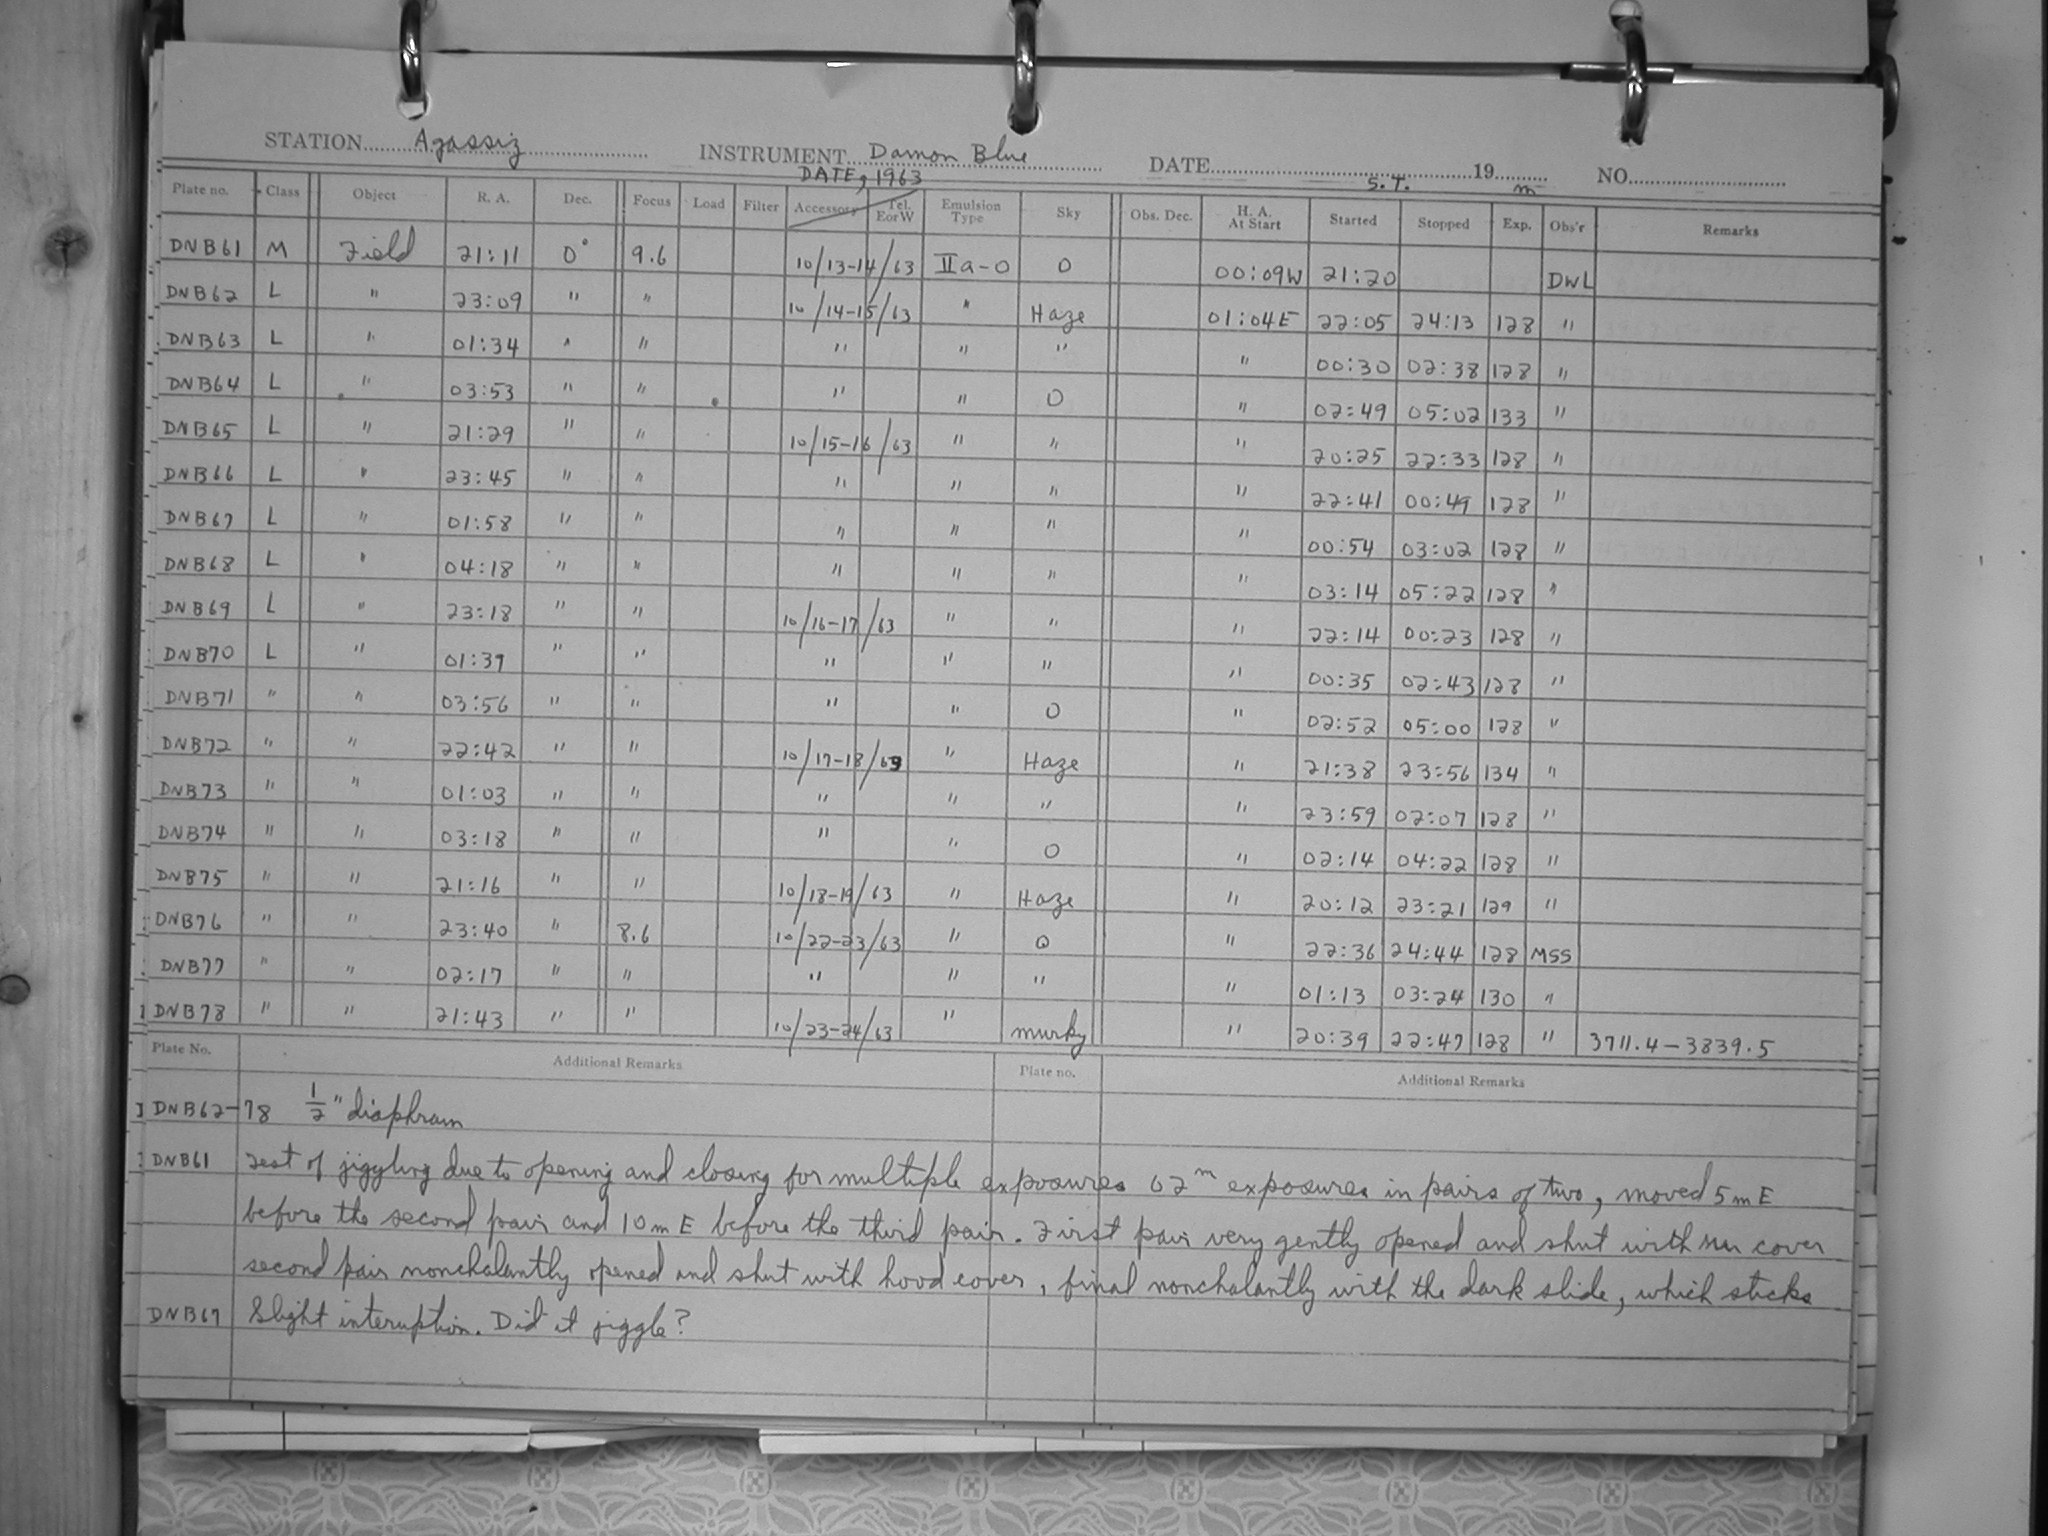 STATION Agassiz INSTRUMENT Damon Blue DATE 19 NO.
DATE, 1963 S.T. m
Plate no. Class Object R. A. Dec. Focus Load Filter Accessory Tel. E or W Emulsion Type Sky Obs. Dec. H. A. At Start Started Stopped Exp. Obs'r Remarks
DNB61 M Field 21:11 0° 9.6 10/13-14/63 IIa-O 0 00:09W 21:20 DWL
DNB62 L " 23:09 " " 10/14-15/63 " Haze 01:04E 22:05 24:13 128 "
DNB63 L " 01:34 " " " " " " 00:30 02:38 128 "
DNB64 L " 03:53 " " " " 0 " 02:49 05:02 133 "
DNB65 L " 21:29 " " 10/15-16/63 " " " 20:25 22:33 128 "
DNB66 L " 23:45 " " " " " " 22:41 00:49 128 "
DNB67 L " 01:58 " " " " " " 00:54 03:02 128 "
DNB68 L " 04:18 " " " " " " 03:14 05:22 128 "
DNB69 L " 23:18 " " 10/16-17/63 " " " 22:14 00:23 128 "
DNB70 L " 01:39 " " " " " " 00:35 02:43 128 "
DNB71 " " 03:56 " " " " 0 " 02:52 05:00 128 "
DNB72 " " 22:42 " " 10/17-18/63 " Haze " 21:38 23:56 134 "
DNB73 " " 01:03 " " " " " " 23:59 02:07 128 "
DNB74 " " 03:18 " " " " 0 " 02:14 04:22 128 "
DNB75 " " 21:16 " " 10/18-19/63 " Haze " 20:12 23:21 129 "
DNB76 " " 23:40 " 8.6 10/22-23/63 " 0 " 22:36 24:44 128 MSS
DNB77 " " 02:17 " " " " " " 01:13 03:24 130 "
DNB78 " " 21:43 " " 10/23-24/63 " murky " 20:39 22:47 128 " 3711.4-3839.5
Plate No. Additional Remarks Plate no. Additional Remarks
DNB62-78 1/2" diaphram
DNB61 Test of jiggling due to opening and closing for multiple exposures 02m exposures in pairs of two, moved 5m E
before the second pair and 10m E before the third pair. First pair very gently opened and shut with cover
second pair nonchalantly opened and shut with hood cover, final nonchalantly with the dark slide, which sticks
DNB67 Slight interuption. Did it jiggle?